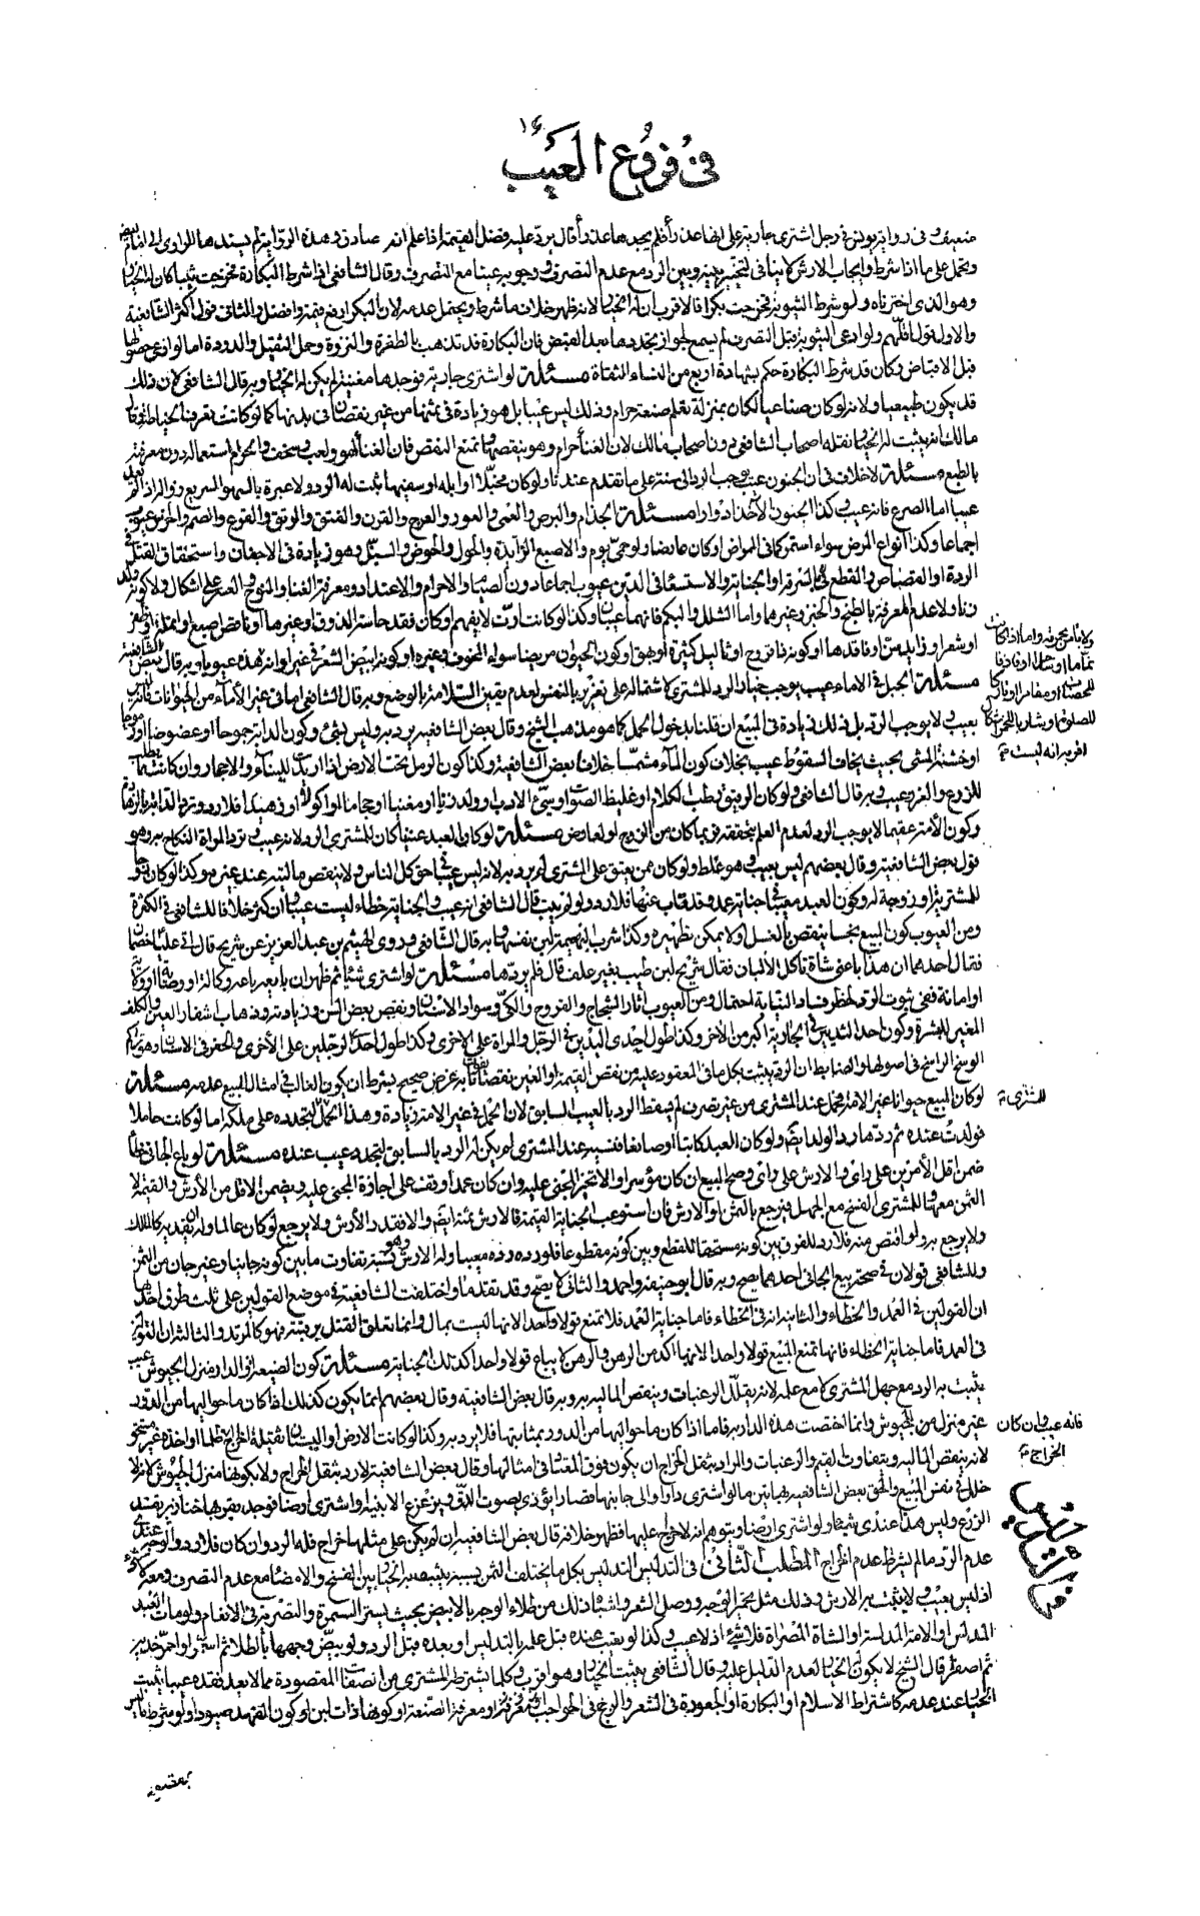 في فروع العيب
ضعيف وفي رواية يونس في رجل اشترى جارية على انها عذراء فلم يجدها عذراء قال يرد عليه فضل القيمة اذا علم انه صادق وهذه الرواية لم يسندها الراوي الى امام
ويحمل على ما اذا شرط وايجاب الارش لا ينافي التخيير بينه وبين الرد مع عدم التصرف ووجوبه عينا مع التصرف وقال الشافعي اذا شرط البكارة فخرجت ثيبا كان له الخيار
وهو الذي اخترناه ولو شرط الثيوبة فخرجت بكرا فالاقرب ان له الخيار لانه ظهر خلاف ما شرط ويحتمل عدمه لان البكر ارفع قيمة وافضل والثاني قول اكثر الشافعية
والاول قول اقلهم ولو ادعى الثيوبة قبل التصرف لم يسمع لجواز تجددها بعد القبض فان البكارة قد تذهب بالطفرة والنزوة وحمل الثقيل والدودة اما لو ادعى حصولها
قبل الاقباض وكان قد شرط البكارة حكم بشهادة اربع من النساء الثقاة مسئلة لو اشترى جارية فوجدها مغنية لم يكن له الخيار وبه قال الشافعي لان ذلك
قد يكون طبيعيا ولانه لو كان صناعيا لكان بمنزلة تعلم صنعة حرام وذلك ليس عيبا بل هو زيادة في ثمنها من غير نقصان في بدنها كما لو كانت تعرف الخياطة وقال
مالك انه يثبت له الخيار نقله اصحاب الشافعي دون اصحاب مالك لان الغناء حرام وهو ينقصها ونمنع النقص فان الغناء لهو ولعب وسخف والحرام استعماله دون معرفته
بالطبع مسئلة لا خلاف في ان الجنون عيب يوجب الرد الى سنة على ما تقدم عندنا ولو كان مخبلا او ابله او سفيها ثبت له الرد ولا عبرة بالسهو السريع زواله اذ لم يعد
عيبا اما الصرع فانه عيب وكذا الجنون الآخذ ادوارا مسئلة الجذام والبرص والعمى والعور والعرج والقرن والفتق والرتق والقرع والصمم والخرس عيوب
اجماعا وكذا انواع المرض سواء استمر كما في الممراض او كان عارضا ولو حمى يوم والاصبع الزايدة والحول والحوص والسبل وهو زيادة في الاجفان واستحقاق القتل في
الردة او القصاص والقطع في السرقة او الجناية والاستسعاء في الدين عيوب اجماعا دون الصيام والاحرام والاعتداد ومعرفة الغناء والنوح والعسر على اشكال ولا كونه ولد
زنا ولا عدم المعرفة بالطبخ والخبز وغيرهما واما الشلل والبكم فانهما عيبان وكذا لو كانت ارت لا يفهم او كان فقد حاسة الذوق او غيرها او ناقص اصبع او انملة او ظفر
او شعر او زايد سن او فاقدها او كونه ذا قروح او ثآليل كثيرة او بهق او كون الحيوان مريضا سواء المخوف وغيره او كونه ابيض الشعر في غير اوانه هذه عيوب وبه قال بعض الشافعية
مسئلة الحبل في الاماء عيب يوجب خيار الرد للمشتري لاشتماله على تغرير بالنفس لعدم يقين السلامة بالوضع وبه قال الشافعي اما في غير الاماء من الحيوانات فانه ليس
بعيب ولا يوجب الرد بل ذلك زيادة في المبيع ان قلنا بدخول الحمل كما هو مذهب الشيخ وقال بعض الشافعية يرد به وليس بشيء وكون الدابة جموحا او عضوضا او رموحا
او خشنة المشي بحيث يخاف السقوط عيب بخلاف كون الماء مشمسا خلافا لبعض الشافعية وكذا كون الرمل تحت الارض اذا اريدت للبناء والاحجار وان كانت مما يطلب
للزرع والغرس عيب وبه قال الشافعي ولو كان الرقيق رطب الكلام او غليظ الصوت او سيئ الادب او ولد زنا او مغنيا او حجاما او اكولا او زهيدا فلا رد وترد الدابة بالزهادة
وكون الامة عقيما لا يوجب الرد لعدم العلم بتحققه فربما كان من الزوج او لعارض مسئلة لو كان العبد عنينا كان للمشتري الرد لانه عيب ترد المراة النكاح به وهو
قول بعض الشافعية وقال بعضهم ليس بعيب وهو غلط ولو كان ممن يعتق على المشتري لم يرد به لانه ليس عيبا في حق كل الناس ولا ينقص ماليته عند غيره وكذا لو كان
للمشتري او زوجة له وكون العبد معيبا في جناية عمد وقد تاب عنها فلا رد ولو لم يتب قال الشافعي انه عيب والجناية خطاء ليست عيبا وان كثر خلافا للشافعي في الكثرة
ومن العيوب كون المبيع نجسا ينقص بالغسل او لا يمكن تطهيره وكذا شرب البهيمة لبن نفسها وبه قال الشافعي وروى الهيثم بن عبد العزيز عن شريح قال اتى عليا خصمان
فقال احدهما ان هذا باعني شاة تاكل الذبان فقال شريح لبن طيب بغير علف قال فلم يردها مسئلة لو اشترى شيئا ثم ظهر ان بايعه باعه وكالة او وصاية او ولاية
او امانة ففي ثبوت الرد لخطر فساد النيابة احتمال ومن العيوب اثار الشجاج والقروح والكي وسواد الاسنان ونقص بعض السن وزيادته وذهاب اشفار العين والكلف
المغير للبشرة وكون احد الثديين في الجارية اكبر من الآخر وكذا طول احدى اليدين في الرجل والمراة على الاخرى وكذا طول احد الرجلين على الاخرى والحفر في الاسنان وهو تراكم
الوسخ الراسخ في اصولها والضابط ان الرد يثبت بكل ما في المعقود عليه من نقص القيمة او العين نقصانا يفوت به غرض صحيح بشرط ان يكون الغالب في امثال المبيع عدمه مسئلة
لو كان المبيع حيوانا غير الامة فحمل عند المشتري من غير تصرف لم يسقط الرد بالعيب السابق لان الحمل في غير الامة زيادة وهذا الحمل لتجدده على ملكه اما لو كانت حاملا
فولدت عنده ثم ردها رد الولد ايضا ولو كان العبد كاتبا او صانعا فنسيه عند المشتري لم يكن له الرد بالسابق لتجدد عيب عنده مسئلة لو باع الجاني خطأ
ضمن اقل الامرين على راي والارش على راي وصح البيع ان كان موسرا والا تخير المجني عليه وان كان عمدا وقف على اجازة المجني عليه ويضمن الاقل من الارش والقيمة لا
الثمن معها وللمشتري الفسخ مع الجهل فيرجع بالثمن او الارش فان استوعب الجناية القيمة فالارش ثمنه ايضا والا فقدر الارش ولا يرجع لو كان عالما وله ان يفديه كالمالك
ولا يرجع به ولو اقتص منه فلا رد للفرق بين كونه مستحقا للقطع وبين كونه مقطوعا فلو رده رده معيبا وله الارش وهو نسبة تفاوت ما بين كونه جانيا وغير جان من الثمن
وللشافعي قولان في صحة بيع الجاني احدهما يصح وبه قال ابو حنيفة واحمد والثاني لا يصح وقد تقدما واختلفت الشافعية في موضع القولين على ثلث طرق احدها
ان القولين في العمد والخطاء والثانية انه في الخطاء فاما جناية العمد فلا تمنع قولا واحدا لانها ليست بمال وانما تعلق القتل برقبته فهو كالمرتد والثالث ان القولين
في العمد فاما جناية الخطاء فانها تمنع المبيع قولا واحدا لانها اكد من الرهن والرهن لا يباع قولا واحدا كذلك الجناية مسئلة كون الضيعة او الدار منزل الجيوش عيب
يثبت به الرد مع جهل المشتري لا مع علمه لانه يقلل الرغبات وينقص المالية وبه قال بعض الشافعية وقال بعضهم انما يكون كذلك اذا كان ما حواليها من الدور
غير منزل من الجيوش وانما اختصت هذه الدار به فاما اذا كان ما حواليها من الدور بمثابتها فلا يرد به وكذا لو كانت الارض او البستان ثقيلة الخراج ظلما او اخذه غير مستحق
لانه ينقص المالية ويتفاوت القيم والرغبات والمراد بثقل الخراج ان يكون فوق المعتاد في امثالها وقال بعض الشافعية لا رد بثقل الخراج ولا بكونها منزل الجيوش لانه لا
خلل في نفس المبيع والحق بعض الشافعية بهاتين ما لو اشترى دارا والى جانبها قصار يؤذي بصوت الدق ويزعزع الابنية او اشترى ارضا فوجد بقربها خنازير يفسد
الزرع وليس هذا عندي شيئا ولو اشترى ارضا ويتوهم انه لا خراج عليها فظهر خلافه قال بعض الشافعية ان لم يكن على مثلها خراج فله الرد وان كان فلا رد والوجه عندي
عدم الرد ما لم يشترط عدم الخراج المطلب الثاني في التدليس التدليس بكل ما يختلف الثمن بسببه يثبت به الخيار بين الفسخ والامضاء مع عدم التصرف ومعه لا شيء
اذ ليس بعيب ولا يثبت به الارش وذلك مثل تحمير الوجه ووصل الشعر واشباه ذلك من طلاء الوجه بالابيض بحيث يستر السمرة والتصرية في الانعام ولو مات العبد
المدلس او الامة المدلسة او الشاة المصراة فلا شيء اذ لا عيب وكذا لو تعيب عنده قبل علمه بالتدليس او بعده قبل الرد ولو بيض وجهها بالطلاء ثم اسمر او احمر خديه
ثم اصفر قال الشيخ لا يكون له الخيار لعدم الدليل عليه وقال الشافعي يثبت الخيار وهو اقرب وكلما يشترطه المشتري من الصفات المقصودة مما لا يعد فقده عيبا يثبت
الخيار عند عدمه كاشتراط الاسلام او البكارة او الجعودة في الشعر والزجج في الحواجب او معرفة الصنعة او كونها ذات لبن او كون الفهد صيودا ولو شرط
للمشتري
فانه عيب وان كان
الخراج